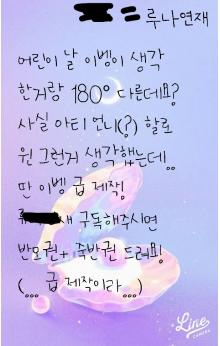 = 루나연재
어린이 날 이벵이 생각
한거랑 180° 다른데요?
사실 아티 언니(?) 할로
윈 그런거 생각했는데..
딴 이벵 급 제작!
새 구독해주시면
반모권+ 죽반권 드려요!
(... 급 제작이라...)
Line
CAMERA